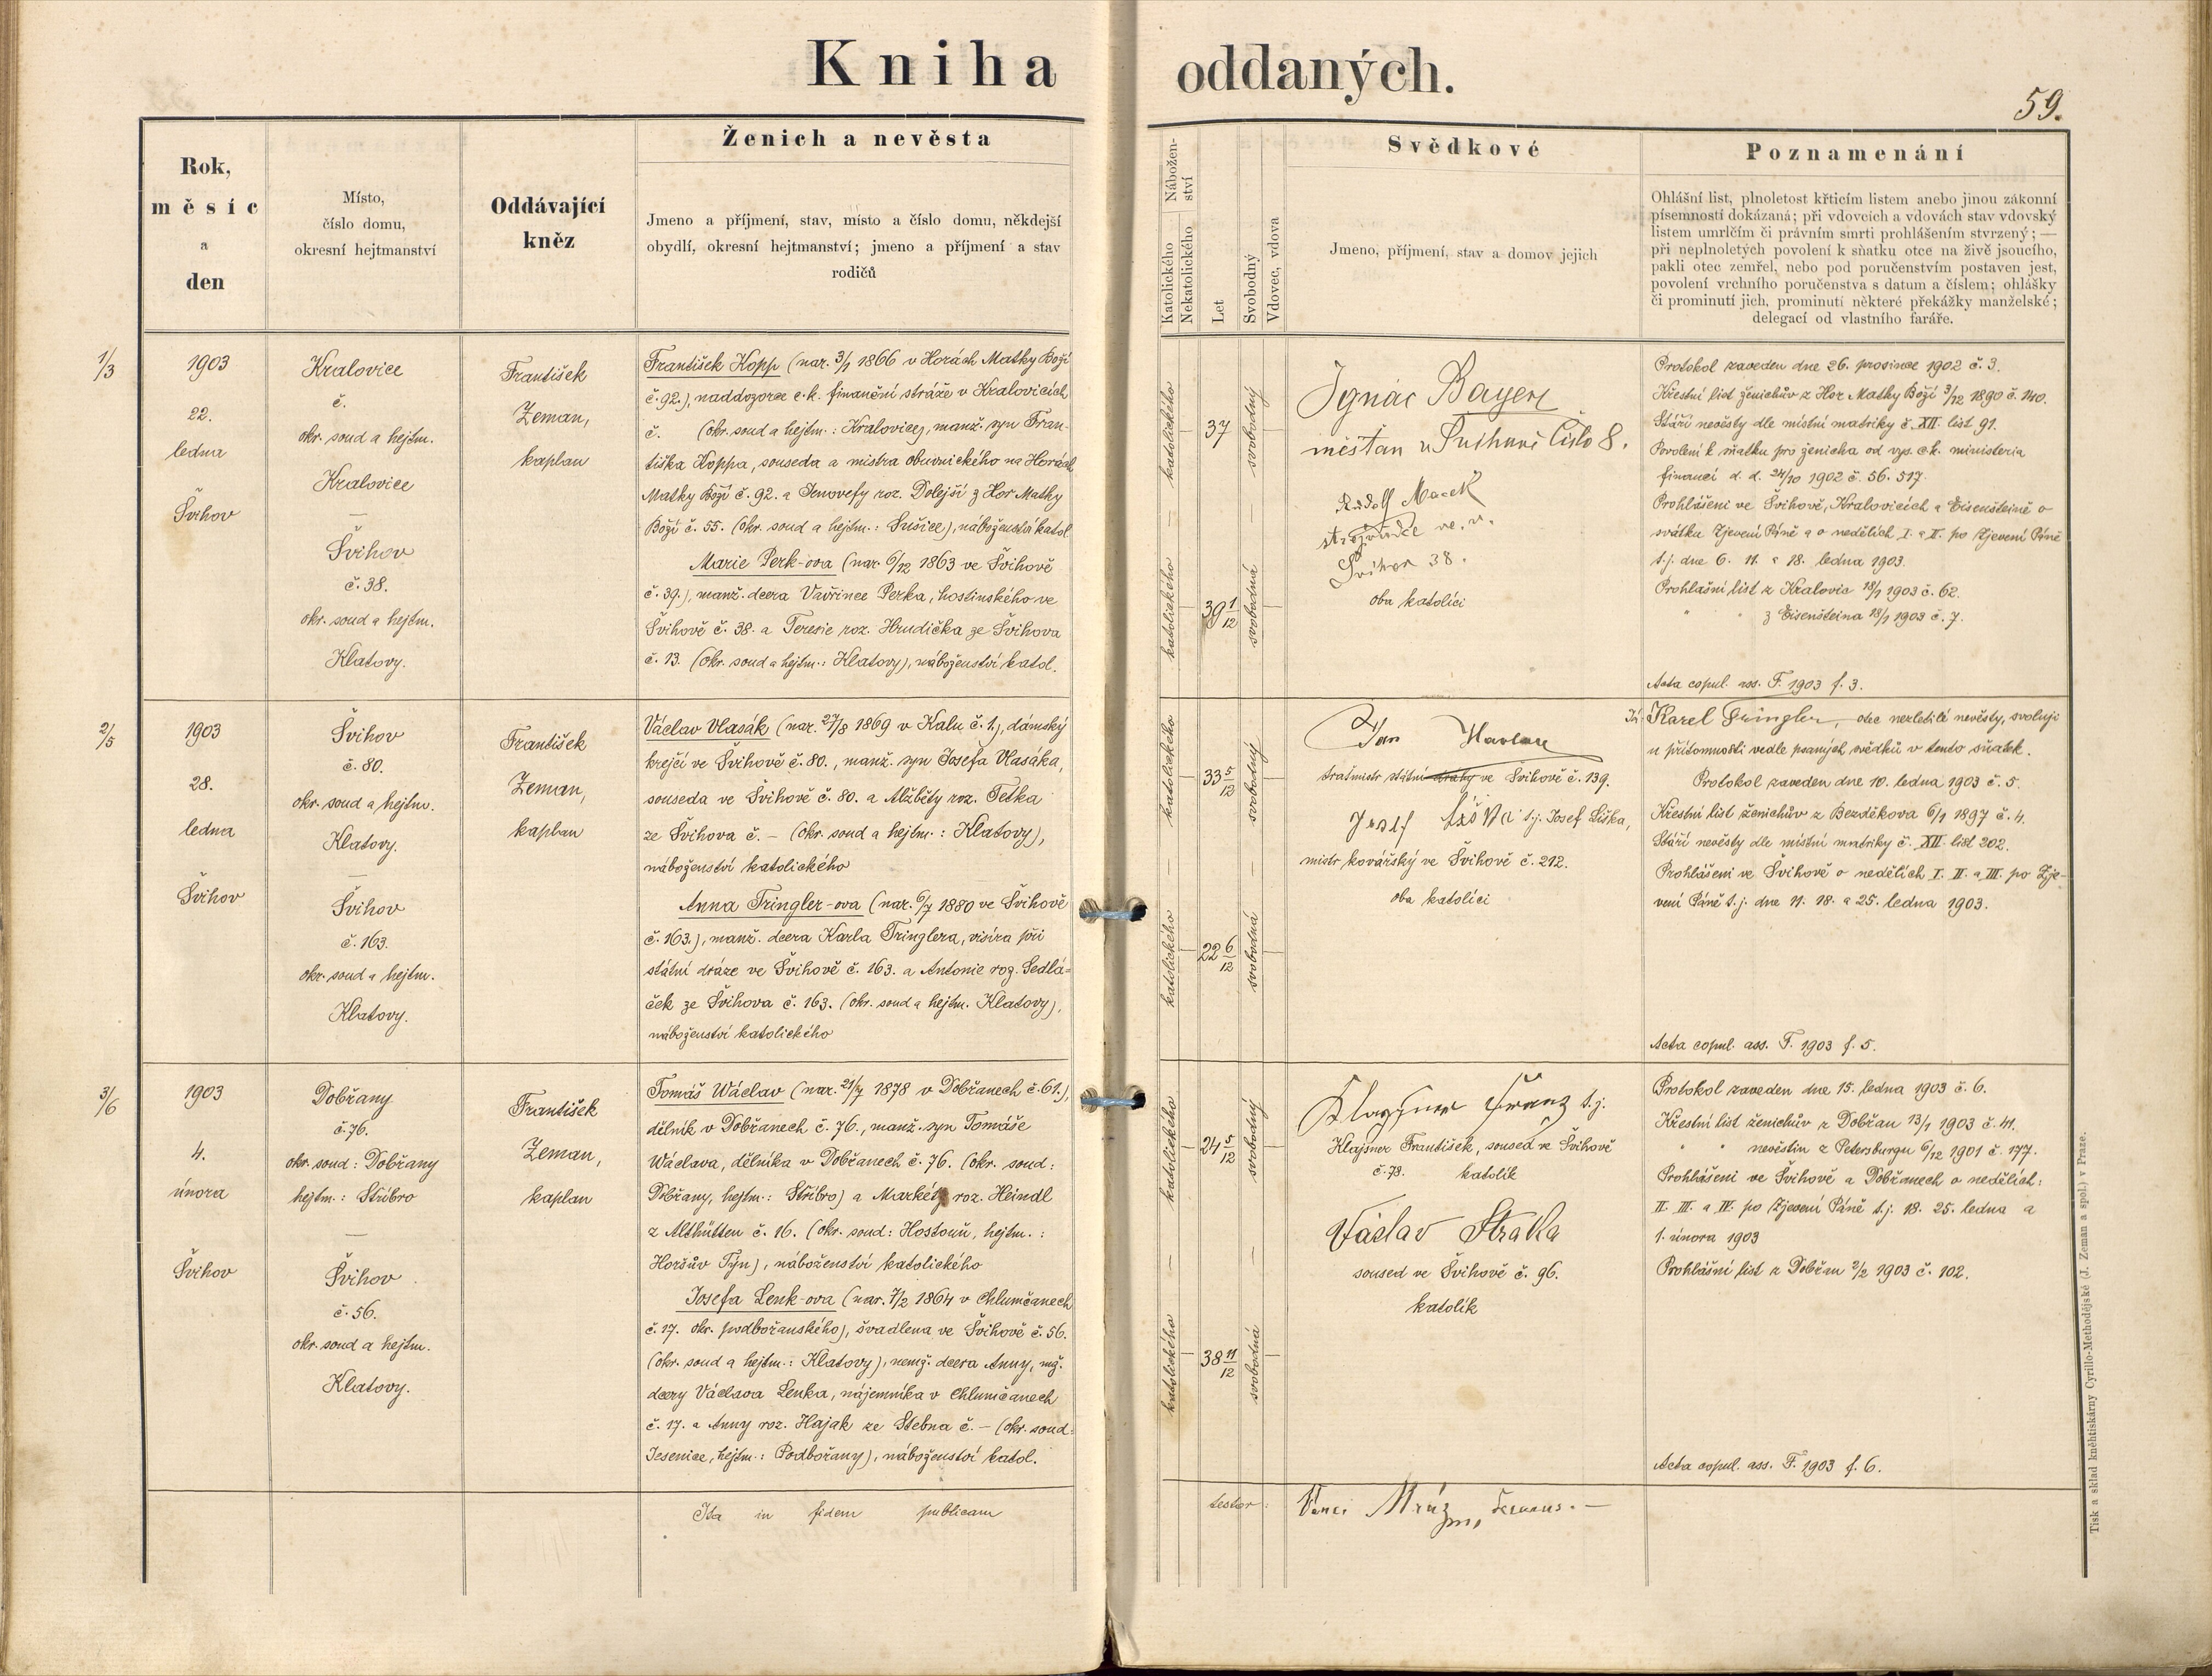 Kniha oddaných.
59.
Rok,
měsíc
a
den
Místo,
číslo domu,
okresní hejtmanství
Oddávající
kněz
Ženich a nevěsta
Jmeno a příjmení, stav, místo a číslo domu, někdejší
obydlí, okresní hejtmanství; jmeno a příjmení a stav
rodičů
Nábožen-
ství
Katolického
Nekatolického
Let
Svobodný
Vdovec, vdova
Svědkové
Jmeno, příjmení, stav a domov jejich
Poznamenání
Ohlášní list, plnoletost křticím listem anebo jinou zákonní
písemností dokázaná; při vdovcích a vdovách stav vdovský
listem umrlčím či právním smrti prohlášením stvrzený; —
při neplnoletých povolení k sňatku otce na živě jsoucího,
pakli otec zemřel, nebo pod poručenstvím postaven jest,
povolení vrchního poručenstva s datum a číslem; ohlášky
či prominutí jich, prominutí některé překážky manželské;
delegací od vlastního faráře.
1/3
1903
22.
ledna
Švihov
Kralovice
č.
okr. soud a hejtm.
Kralovice
—
Švihov
č. 38.
okr. soud a hejtm.
Klatovy.
František
Zeman,
kaplan
František Kopp (nar. 3/1 1866 v Horách Matky Boží
č. 92.), naddozorce c. k. finanční stráže v Kralovicích
č. (okr. soud a hejtm.: Kralovice), manž. syn Fran-
tiška Koppa, souseda a mistra obuvnického na Horách
Matky Boží č. 92. a Jenovefy roz. Dolejší z Hor Matky
Boží č. 55. (okr. soud a hejtm.: Sušice), náboženství katol.
Marie Perk-ova (nar. 6/12 1863 ve Švihově
č. 39.), manž. dcera Vavřince Perka, hostinského ve
Švihově č. 38. a Teresie roz. Hrudička ze Švihova
č. 13. (okr. soud a hejtm.: Klatovy), náboženství katol.
katolického
—
37
svobodný
—
katolického
39 1/12
svobodná
Ignác Bayer
měšťan v Švihově Číslo 8.
Rudolf Macek
strojvůdce ve. v.
Švihov 38.
oba katolíci
Protokol zaveden dne 26. prosince 1902 č. 3.
Křestní list ženichův z Hor Matky Boží 3/12 1890 č. 140.
Stáří nevěsty dle místní matriky č. XII. list 91.
Povolení k sňatku pro ženicha od vys. c. k. ministeria
financí d. d. 24/10 1902 č. 56. 517.
Prohlášeni ve Švihově, Kralovicích a Eisensteině o
svátku Zjevení Páně a o nedělích I. a II. po Zjevení Páně
t. j. dne 6. 11. a 18. ledna 1903.
Prohlašní list z Kralovic 18/1 1903 č. 62.
" " z Eisensteina 18/1 1903 č. 7.
Acta copul. ass. F. 1903 f. 3.
2/5
1903
28.
ledna
Švihov
Švihov
č. 80.
okr. soud a hejtm.
Klatovy.
—
Švihov
č. 163.
okr. soud a hejtm.
Klatovy.
František
Zeman,
kaplan
Václav Vlasák (nar. 27/8 1869 v Kalu č. 1.), dámský
krejčí ve Švihově č. 80., manž. syn Josefa Vlasáka,
souseda ve Švihově č. 80. a Alžběty roz. Tetka
ze Švihova č. – (okr. soud a hejtm.: Klatovy),
náboženství katolického
Anna Tringler-ova (nar. 6/7 1880 ve Švihově
č. 163.), manž. dcera Karla Tringlera, visíra při
státní dráze ve Švihově č. 163. a Antonie roz. Sedlá-
ček ze Švihova č. 163. (okr. soud a hejtm. Klatovy),
náboženství katolického
katolického
—
33 5/12
svobodný
—
katolického
22 6/12
svobodná
Jan Havlan
traťmistr státní dráhy ve Švihově č. 139.
Josef Liška t. j. Josef Liška,
mistr kovářský ve Švihově č. 212.
oba katolíci
Já Karel Tringler, otec nezletilé nevěsty, svoluji
u přítomnosti vedle psaných svědků v tento sňatek.
Protokol zaveden dne 10. ledna 1903 č. 5.
Křestní list ženichův z Bezděkova 6/1 1897 č. 4.
Stáří nevěsty dle místní matriky č. XII. list 202.
Prohlášeni ve Švihově o nedělích I. II. a III. po Zje-
vení Páně t. j. dne 11. 18. a 25. ledna 1903.
Acta copul. ass. F. 1903 f. 5.
3/6
1903
4.
února
Švihov
Dobřany
č. 76.
okr. soud: Dobřany
hejtm.: Stříbro
—
Švihov
č. 56.
okr. soud a hejtm.
Klatovy.
František
Zeman,
kaplan
Tomáš Wáclav (nar. 21/7 1878 v Dobřanech č. 61.),
dělník v Dobřanech č. 76., manž. syn Tomáše
Wáclava, dělníka v Dobřanech č. 76. (okr. soud:
Dobřany, hejtm.: Stříbro) a Markéty roz. Heindl
z Althütten č. 16. (okr. soud: Hostouň, hejtm.:
Horšův Týn), náboženství katolického
Josefa Lenk-ova (nar. 7/2 1864 v Chlumčanech
č. 17. okr. podbořanského), švadlena ve Švihově č. 56.
(okr. soud a hejtm.: Klatovy), nemž. dcera Anny, mž.
dcery Václava Lenka, nájemníka v Chlumčanech
č. 17. a Anny roz. Hajak ze Stebna č. – (okr. soud:
Jesenice, hejtm.: Podbořany), náboženství katol.
katolického
—
24 5/12
svobodný
—
katolického
38 11/12
svobodná
Klaysner Franz t. j.
Klajsner František, soused ve Švihově
č. 78. katolík
Václav Straka
soused ve Švihově č. 96.
katolík
Protokol zaveden dne 15. ledna 1903 č. 6.
Křestní list ženichův z Dobřan 13/1 1903 č. 41.
" " nevěstin z Petersburgu 6/12 1901 č. 177.
Prohlášeni ve Švihově a Dobřanech o nedělích:
II. III. a IV. po Zjevení Páně t. j. 18. 25. ledna a
1. února 1903
Prohlášní list z Dobřan 2/2 1903 č. 102.
Acta copul. ass. F. 1903 f. 6.
Ita in fidem publicam
testor: Mráz
Tisk a sklad kněhtiskárny Cyrillo-Methodějské (J. Zeman a spol.) v Praze.